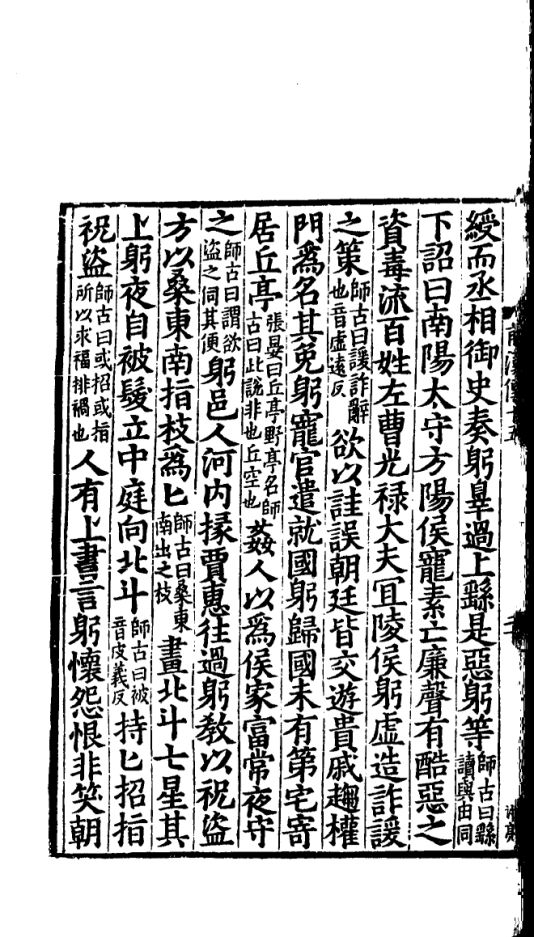 綬而丞相御史奏躬辠過上繇是惡躬等師古曰繇讀與由同
下詔曰南陽太守方陽侯寵素亡廉聲有酷惡之
資毒流百姓左曹光祿大夫冝陵侯躬虛造詐諼
之策師古曰諼詐辭也音虛遠反欲以詿誤朝廷皆交遊貴戚趨權
門爲名其免躬寵官遣就國躬歸國未有第宅寄
居丘亭張晏曰丘亭野亭名師古曰此說非也丘空也姦人以爲侯家富常夜守
之師古曰謂欲盜之伺其便躬邑人河内掾賈惠往過躬敎以祝盜
方以桑東南指枝爲匕師古曰桑東南出之枝畫北斗七星其
上躬夜自被髮立中庭向北斗師古曰被音皮義反持匕招指
祝盜師古曰或招或指所以求福排禍也人有上書言躬懷怨恨非笑朝